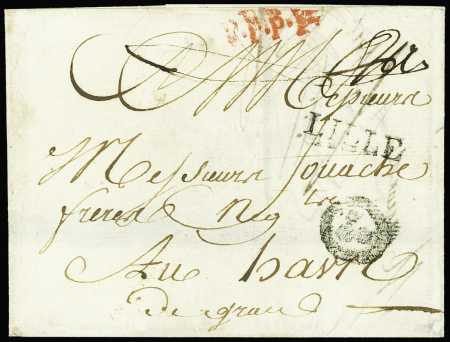 P.P.P.P.
A
Messieurs
LILLE
Messieurs Fouache
freres Neg
Au havre
de grace